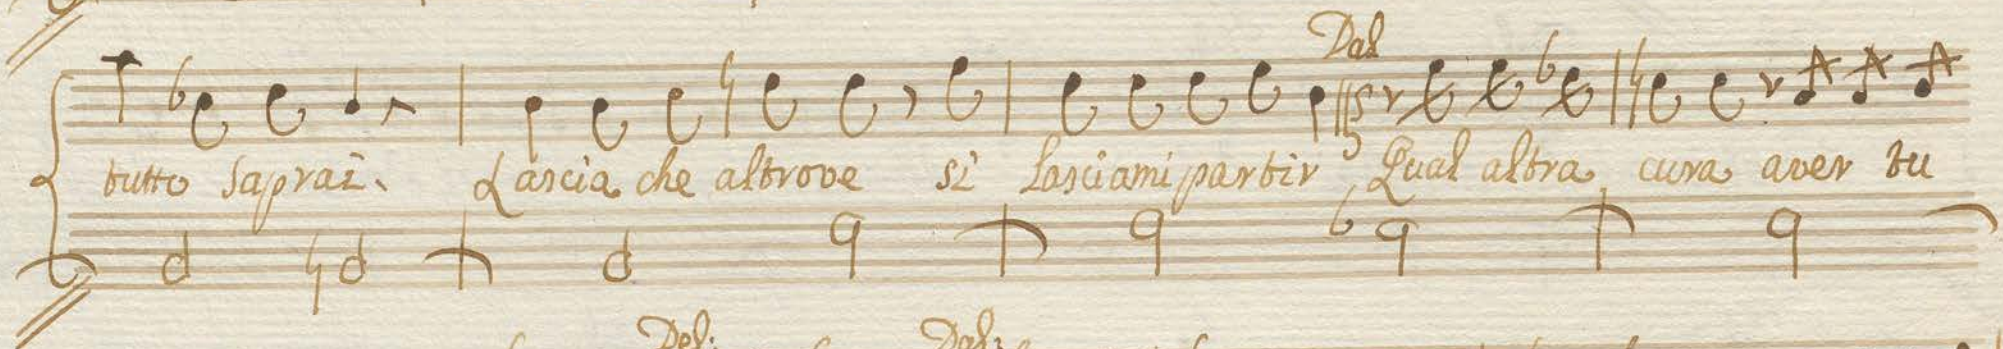 Dal
tutto Saprai. Lascia che altrove si lasciami partir Qual altra cura aver tu
Del: Dal: